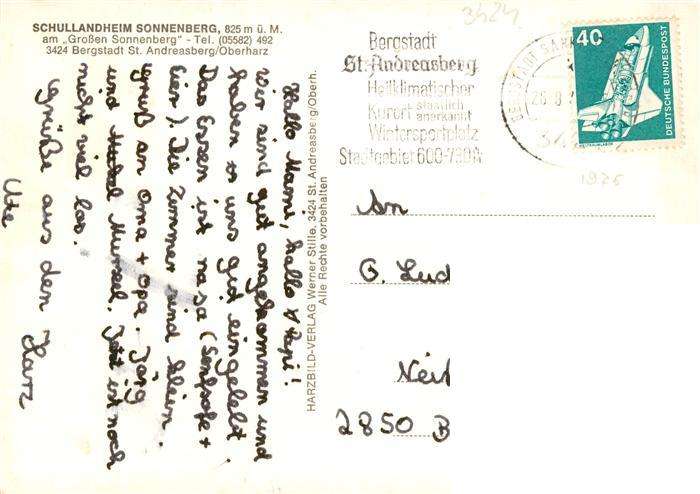 SCHULLANDHEIM SONNENBERG, 825 m ü. M.
am „Großen Sonnenberg" - Tel. (05582) 492
3424 Bergstadt St. Andreasberg/Oberharz
Hallo Mami, hallo Papi!
Wir sind gut angekommen und
haben uns gut eingelebt.
Das Essen ist nasa (Senfsoße +
Eier). Die Zimmer sind klein.
Gruß an Oma + Opa. Jörg
und Mursel. Jetzt ist noch
nicht viel los.
Grüße aus dem Harz
Ute
HARZBILD-VERLAG Werner Stille, 3424 St. Andreasberg/Oberh.
Alle Rechte vorbehalten
3424
Bergstadt
St. Andreasberg
Heilklimatischer
Kurort staatlich anerkannt
Wintersportplatz
Stadtgebiet 600-790m
40
DEUTSCHE BUNDESPOST
1976
An
G. Lud
Neit
2850 B